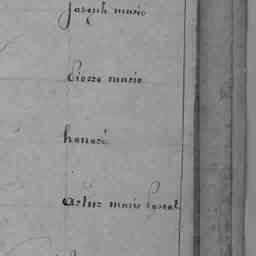 joseph marie
Pierre marie
honoré
Artus marie Pascal